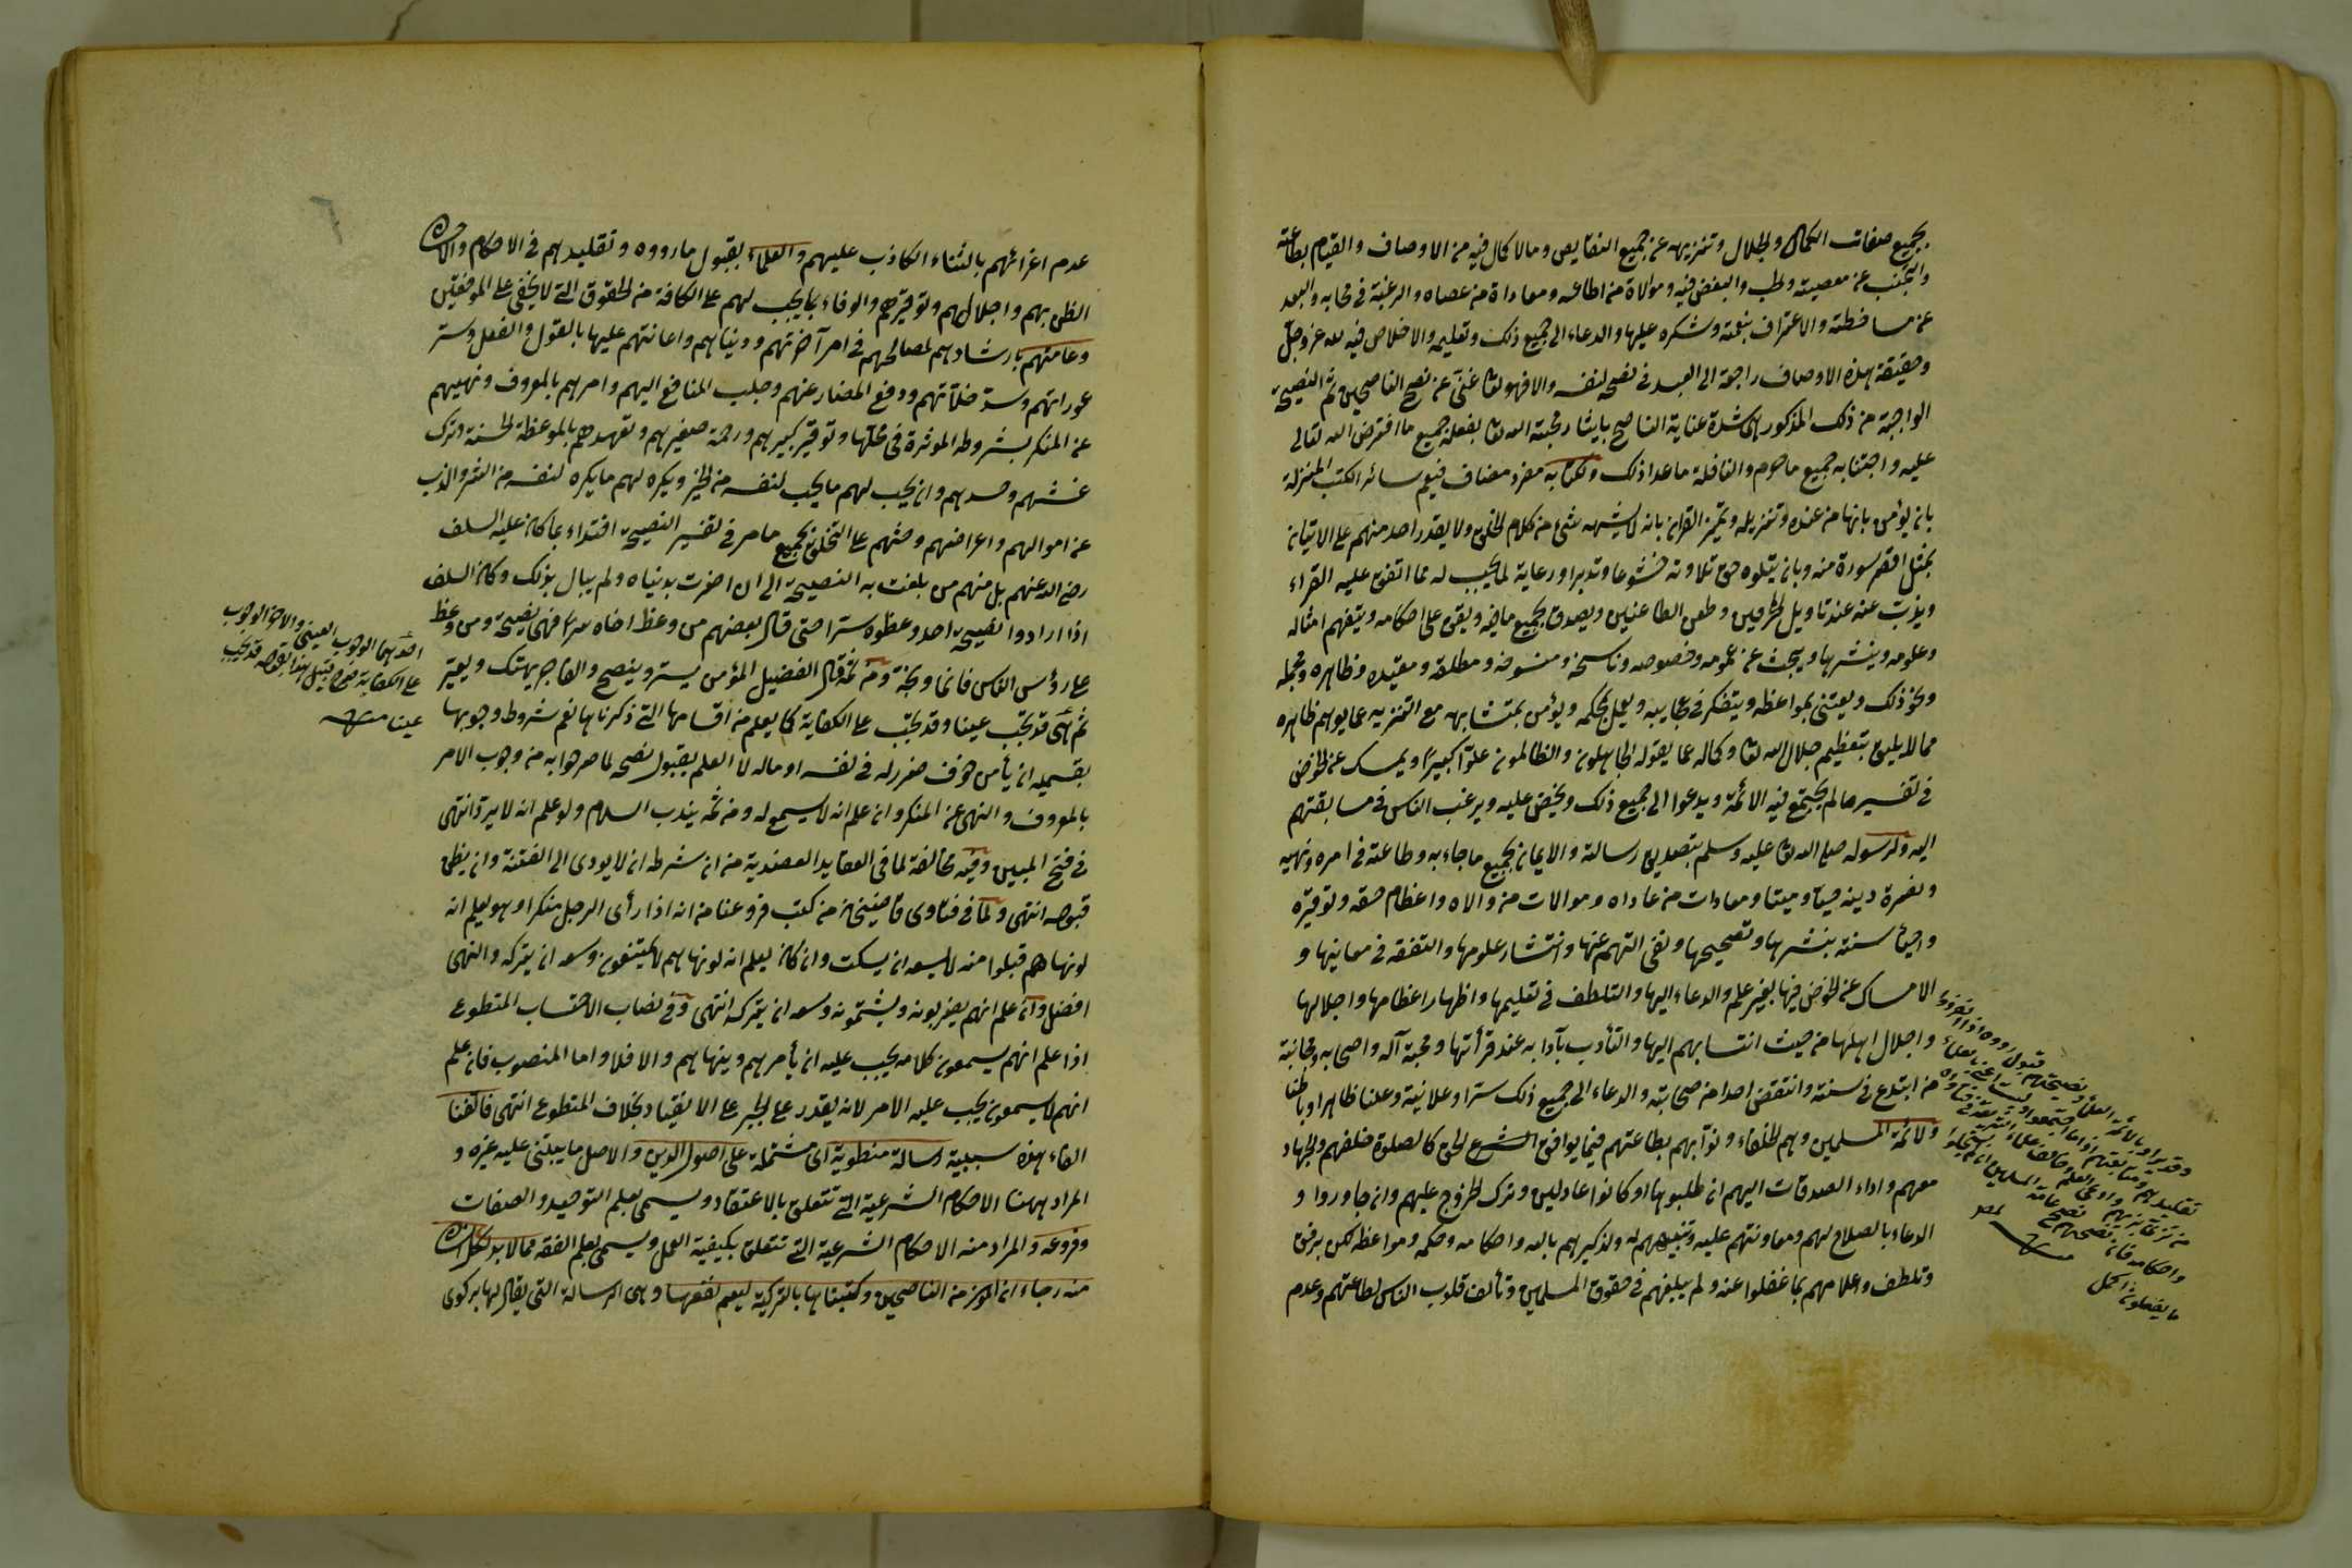 بجميع صفات الكمال والجلال وتنزيهه عن جميع النقايص ومالا كمال فيه من الاوصاف والقيام بطاعته
والتجنب عن معصيته والحب والبغض فيه وموالاة من اطاعه ومعاداة من عصاه والرغبة في محابه والبعد
عن مساخطه والاعتراف بنعمته وشكره عليها والدعاء الى جميع ذلك وتعليمه والاخلاص فيه لله عز وجل
وحقيقة هذه الاوصاف راجعة الى العبد في نصحه لنفسه والا فهو تعا غنى عن نصح الناصحين ثم النصيحة
الواجبة من ذلك المذكور هى شدة عناية الناصح بايثار محبة الله تعا بفعله جميع ما افترض الله تعالى
عليه واجتنابه جميع ما حرم والنافلة ما عدا ذلك ولكتابه مفرد مضاف فيعم سائر الكتب المنزلة
بان يؤمن بانها من عنده وتنزيله ويميز القران بانه لا يشبهه شئ من كلام الخلق ولا يقدر احد منهم على الاتيان
بمثل اقصر سورة منه وبان يتلوه حق تلاوته خشوعا وتدبرا ورعاية لما يجب له مما اتفق عليه القراء
ويذب عنه عند تاويل المحرفين وطعن الطاعنين ويصدق بجميع ما فيه ويقف على احكامه ويتفهم امثاله
وعلومه وينشرها ويبحث عن عمومه وخصوصه وناسخه ومنسوخه ومطلقه ومقيده وظاهره ومجمله
ونحو ذلك ويعتنى بمواعظه ويتفكر في عجايبه ويعمل بمحكمه ويؤمن بمتشابهه مع التنزيه عما يوهم ظاهره
مما لا يليق بتعظيم جلال الله تعا وكماله عما يقوله الجاهلون والظالمون علوا كبيرا ويمسك عن الخوض
في تفسير ما لم يجتمع فيه الائمة ويدعوا الى جميع ذلك ويحض عليه ويرغب الناس في مسابقتهم
اليه ولرسوله صلى الله تعا عليه وسلم بتصديق رسالته والايمان بجميع ما جاء به وطاعته في امره ونهيه
ونصرة دينه حيا وميتا ومعادات من عاداه وموالات من والاه واعظام حقه وتوقيره
واحياء سنته بنشرها وتصحيحها ونفى التهم عنها وانتشار علومها والتفقه في معانيها و
الامساك عن الخوض فيها بغير علم والدعاء اليها والتلطف في تعليمها واظهار اعظامها واجلالها
واجلال اهلها من حيث انتسابهم اليها والتأدب بآدابه عند قرأتها ومحبة آله واصحابه ومجانبة
من ابتدع في سنته وانتقض احدا من صحابته والدعاء الى جميع ذلك سترا وعلانية وعلنا ظاهرا وباطنا
ولائمة المسلمين وهم الخلفاء ونوابهم بطاعتهم فيما يوافق الشرع الحق كالصلوة خلفهم والجهاد
معهم واداء الصدقات اليهم ان طلبوها او كانوا عادلين وترك الخروج عليهم وان جاوروا و
الدعاء بالصلاح لهم ومعاونتهم عليه وتنبيههم له وتذكيرهم بالله واحكامه وحكمه ومواعظه لكن برفق
وتلطف واعلامهم بما غفلوا عنه ولم يبلغهم في حقوق المسلمين وتألف قلوب الناس لطاعتهم وعدم
عدم اغرائهم بالثناء الكاذب عليهم والعلماء بقبول ما رووه وتقليدهم في الاحكام واحسان
الظن بهم واجلالهم وتوقيرهم والوفاء بما يجب لهم على الكافة من الحقوق التي لا يخفى على الموفقين
وعامتهم بارشادهم لمصالحهم في امر آخرتهم ودنياهم واعانتهم عليها بالقول والفعل وستر
عوراتهم وسد خلاتهم ودفع المضار عنهم وجلب المنافع اليهم وامرهم بالمعروف ونهيهم
عن المنكر بشروطه الموثرة في محلها وتوقير كبيرهم ورحمة صغيرهم وتعهدهم بالموعظة الحسنة وترك
غشهم وحسدهم وان يحب لهم ما يحب لنفسه من الخير ويكره لهم ما يكره لنفسه من الشر والذب
عن اموالهم واعراضهم وحثهم على التخلق بجميع ما مر في تفسير النصيحة اقتداء بما كان عليه السلف
رضى الله عنهم بل منهم من بلغت به النصيحة الى ان اضرت بدنياه ولم يبال بذلك وكان السلف
اذا ارادوا نصيحة احد وعظوه سترا حتى قال بعضهم من وعظ اخاه سرا فهى نصيحة ومن وعظ
على رؤس الناس فانما وبخه ومن ثمه قال الفضيل المؤمن يستر وينصح والفاجر يهتك ويعير
ثم هى قد تجب عينا وقد تجب على الكفاية كما يعلم من اقسامها التي ذكرناها نعم شروط وجوبها
بقسميه ان يأمن خوف ضرر له في نفسه او ماله لا العلم بقبول نصحه لما صرحوا به من وجوب الامر
بالمعروف والنهى عن المنكر وان علم انه لا يسمع له ومن ثمه يندب السلام ولو علم انه لا يرد انتهى
في فتح المبين وفيه مخالفة لما في العقايد العضدية من ان شرطه ان لا يودى الى الفتنة وان يظن
قبوله انتهى ولما في فتاوى قاضيخان من كتب فروعنا من انه اذا رأى الرجل منكرا وهو يعلم انه
لو نهاهم قبلوا منه لا يسعه ان يسكت وان كان يعلم انه لو نهاهم لا يمتنعون وسعه ان يتركه والنهى
افضل وان علم انهم يضربونه ويشتمونه وسعه ان يتركه انتهى وفي نصاب الاحتساب المتطوع
اذا علم انهم يسمعون كلامه يجب عليه ان يأمرهم وينهاهم والا فلا واما المنصوب فان علم
انهم لا يسمعون يجب عليه الامر لانه يقدر على الجبر على الانقياد بخلاف المتطوع انتهى فالفنا
الفاء هذه سببية رسالة منطوية اى مشتملة على اصول الدين والاصل ما يبتنى عليه غيره و
المراد ههنا الاحكام الشرعية التي تتعلق بالاعتقاد ويسمى بعلم التوحيد والصفات
وفروعه والمراد منه الاحكام الشرعية التي تتعلق بكيفية العمل ويسمى بعلم الفقه مما لا بد لكل
منه رجاء ان اكون من الناصحين وكتبناها بالتركية ليعم نفعها وهى الرسالة التي يقال لها بركوى
احدهما الوجوب العينى والاخر الوجوب
على الكفاية
عينا